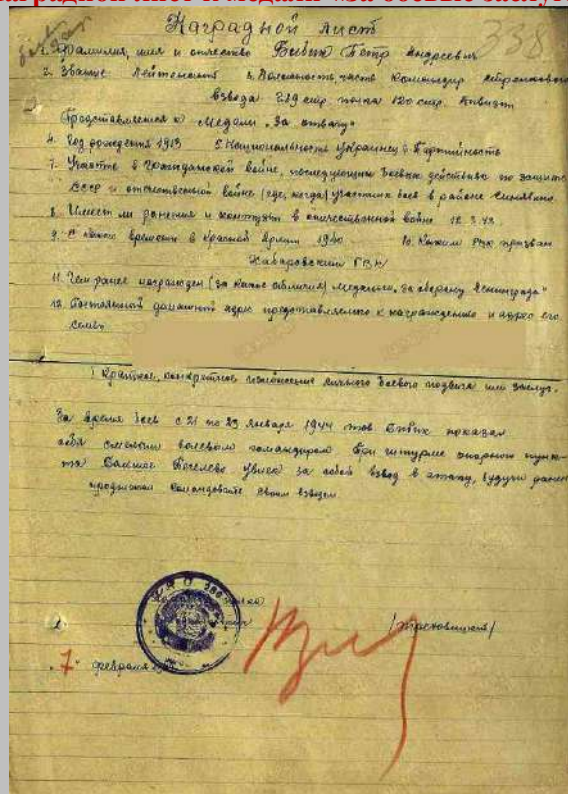 градной лист к медали «За боевые заслуг
338
Наградной лист
1. Фамилия, имя и отчество Бибик Петр Андреевич
2. Звание Лейтенант 3. Должность, часть Командир стрелкового
взвода 289 стр. полка 120 стр. дивизии
Представляется к Медали "За отвагу"
4. Год рождения 1913 5. Национальность Украинец 6. Партийность
7. Участие в Гражданской войне, последующих боевых действиях по защите
СССР и отечественной войне (где, когда) участник боев в районе Синявино
8. Имеет ли ранения и контузии в отечественной войне 12.3.43
9. С какого времени в Красной Армии 1940 10. Каким РВК призван
Хабаровский ГВК
11. Чем ранее награжден (за какие отличия) Медалью "За оборону Ленинграда"
12. Постоянный домашний адрес представляемого к награждению и адрес его
семьи
1 Краткое, конкретное изложение личного боевого подвига или заслуг.
За время боев с 21 по 23 января 1944 тов Бибик показал
себя смелым волевым командиром При штурме опорного пунк-
та Большое увлек за собой взвод в атаку, будучи ранен
продолжал командовать своим взводом
"7" февраля